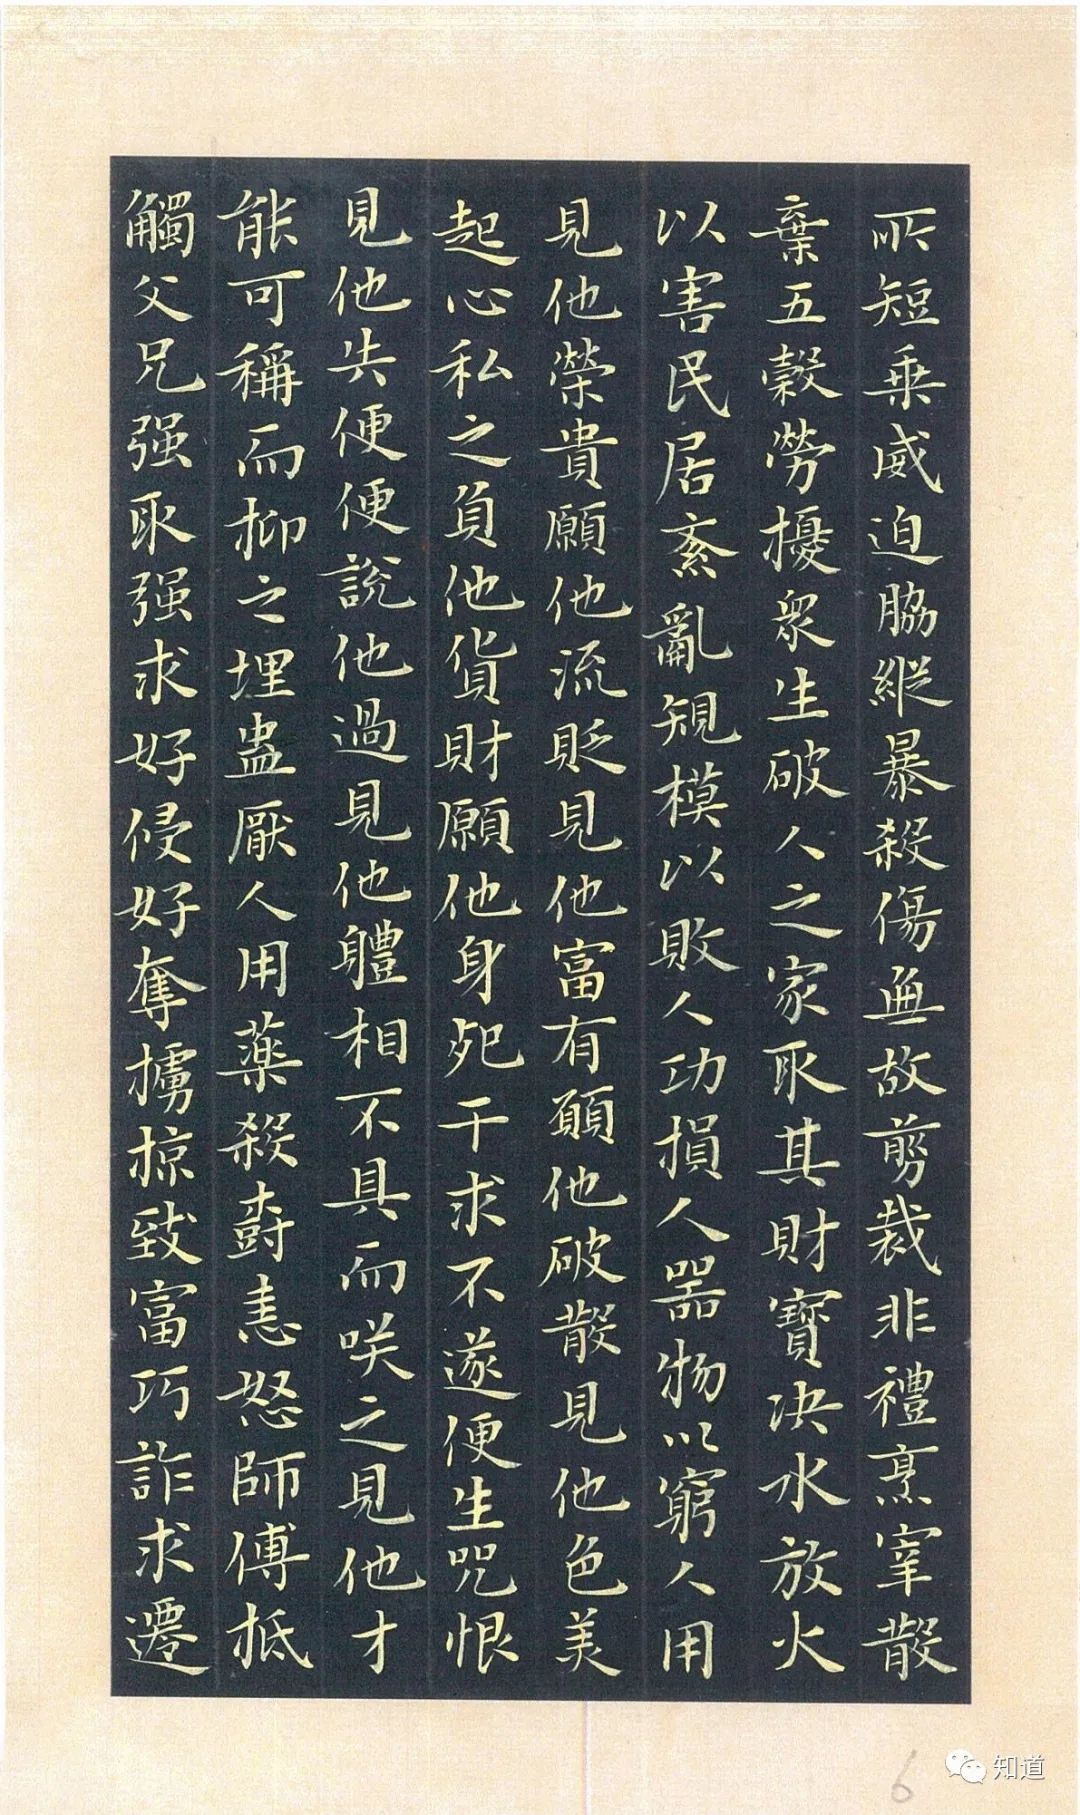 所短乗威迫脇縱暴殺傷無故剪裁非禮烹宰散
棄五穀勞擾衆生破人之家取其財寶決水放火
以害民居紊亂規模以敗人功損人器物以窮人用
見他榮貴願他流貶見他富有願他破散見他色美
起心私之負他貨財願他身死干求不遂便生咒恨
見他失便便說他過見他體相不具而咲之見他才
能可稱而抑之埋蠱厭人用藥殺樹恚怒師傅抵
觸父兄强取强求好侵好奪擄掠致富巧詐求遷
6
知道